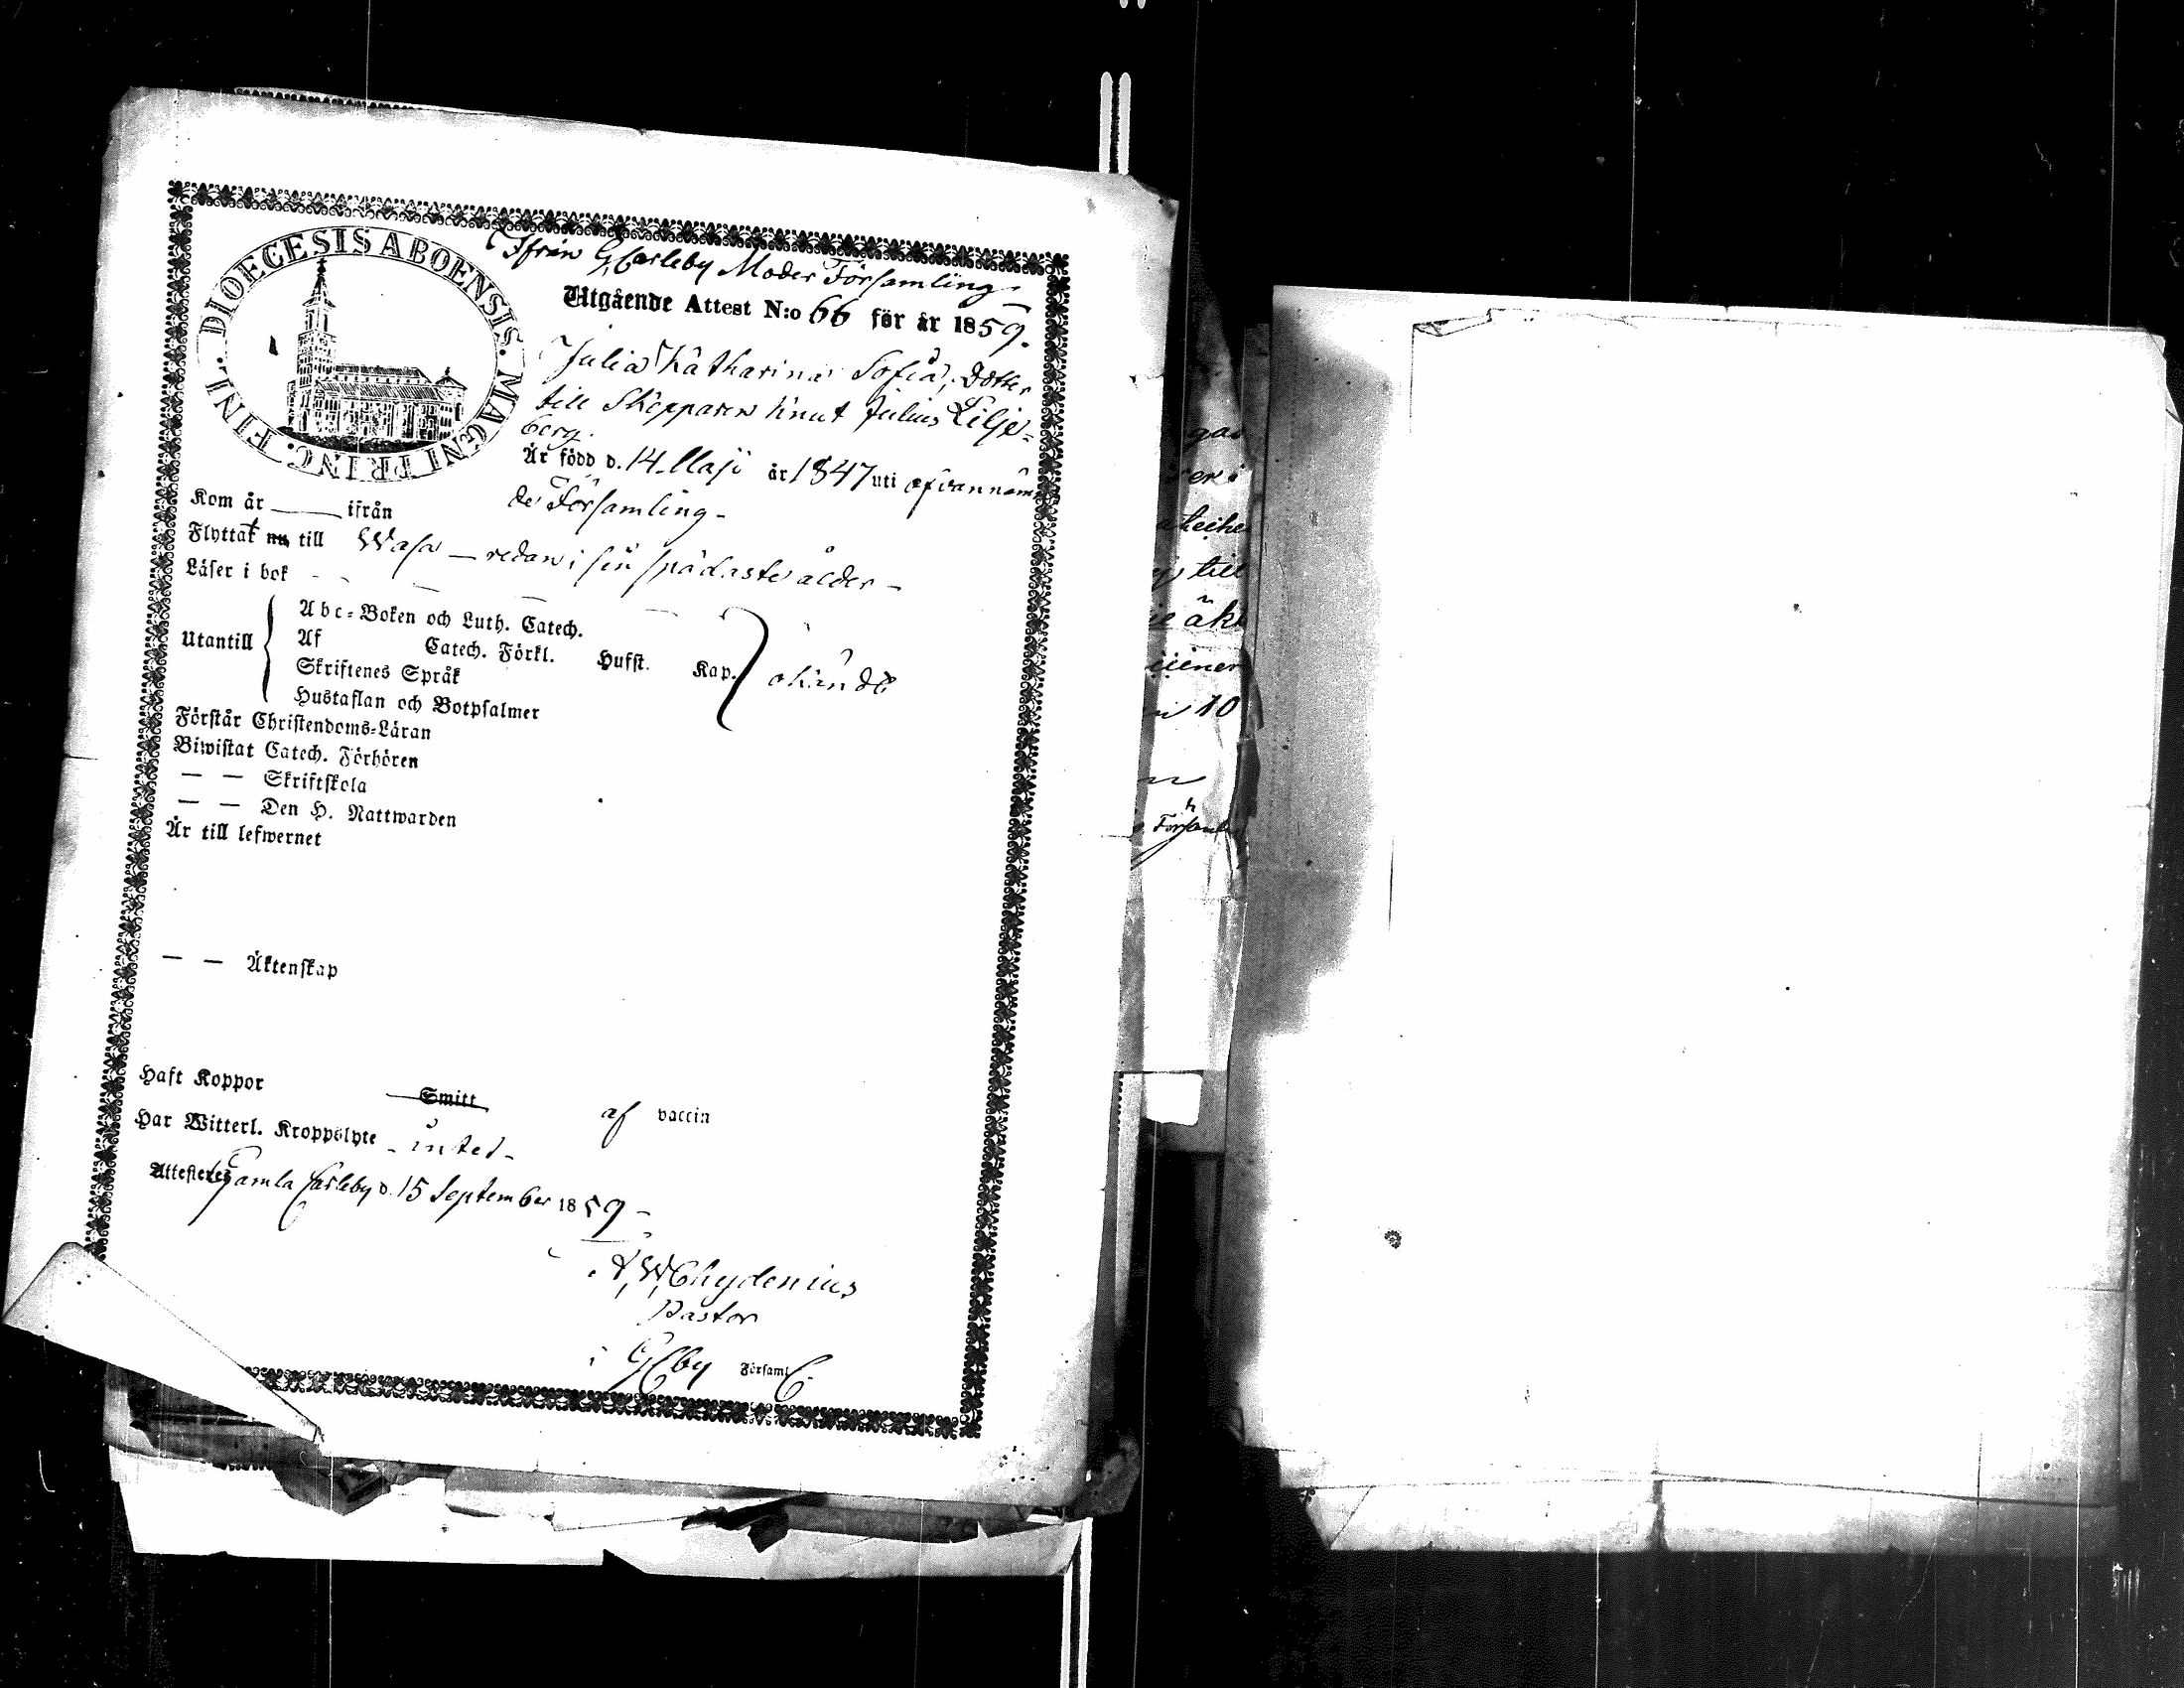 DIOECESIS ABOENSIS. MAGNI PRINC. FINL.
Ifrån G Carleby Moder Församling
Utgående Attest N:o 66 för år 1859.
Julia Katharina Sofia, dotter
till Skepparen Knut Julius Lilje-
berg.
Är född d. 14 Maji år 1847 uti ofvannämn
de Församling -
Kom år ifrån
Flyttat nu till Wasa — redan i sin spädaste ålder —
Läser i bok
Utantill
Abc-Boken och Luth. Catech.
Af Catech. Förkl. Hufst. Kap.
Skriftenes Språk
Hustaflan och Botpsalmer
okändt
Förstår Christendoms-Läran
Biwistat Catech. Förhören
— — Skriftskola
— — Den H. Nattwarden
Är till lefwernet
— — Äktenskap
Haft Koppor Smitt af vaccin
Har Witterl. Kroppslyte - intet -
Attesteres Gamla Carleby d. 15 September 1859 -
A, W, Chydenius
Pastor
i GCby Församl.
till
10